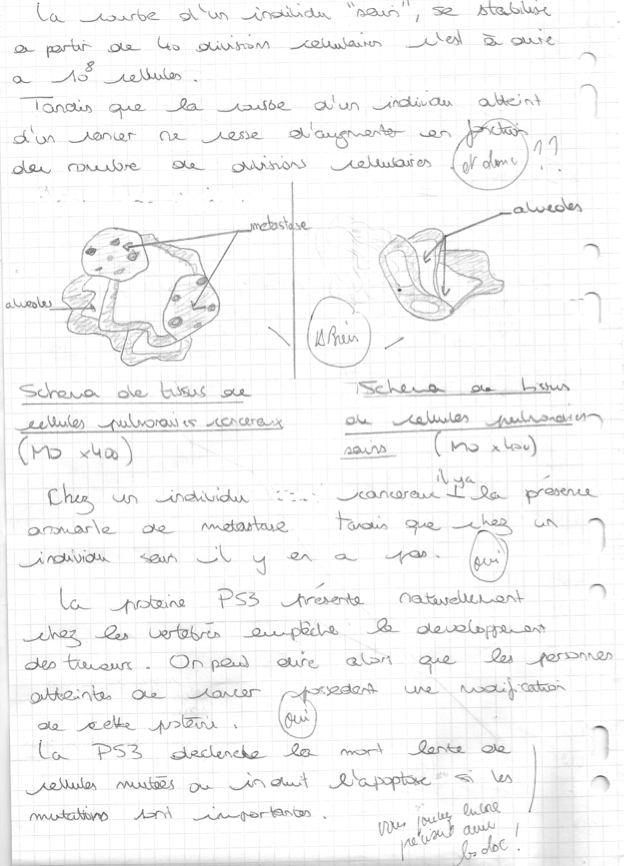 la courbe d'un individu "sain", se stabilise
a partir de 40 divisions cellulaires c'est à dire
a 10⁸ cellules.
Tandis que la courbe d'un individu atteint
d'un cancer ne cesse d'augmenter en fonction
du nombre de divisions cellulaires et donc ??
metastase
alveoles
alveoles
A Bien
Schema de tissus de
cellules pulmonaires cancereux
(MO x400)
Schema de tissus
de cellules pulmonaires
sains (MO x400)
Chez un individu cancereux il y a la présence
anormale de metastase tandis que chez un
individu sain il y en a pas. oui
La proteine P53 présente naturellement
chez les vertébrés empêche le developpement
des tumeurs. On peut dire alors que les personnes
atteintes de cancer possedent une modification
de cette protéine. oui
La P53 declenche la mort lente de
cellules mutées ou induit l'apoptose si les
mutations sont importantes.
vous pouvez encore
préciser avec
le doc !